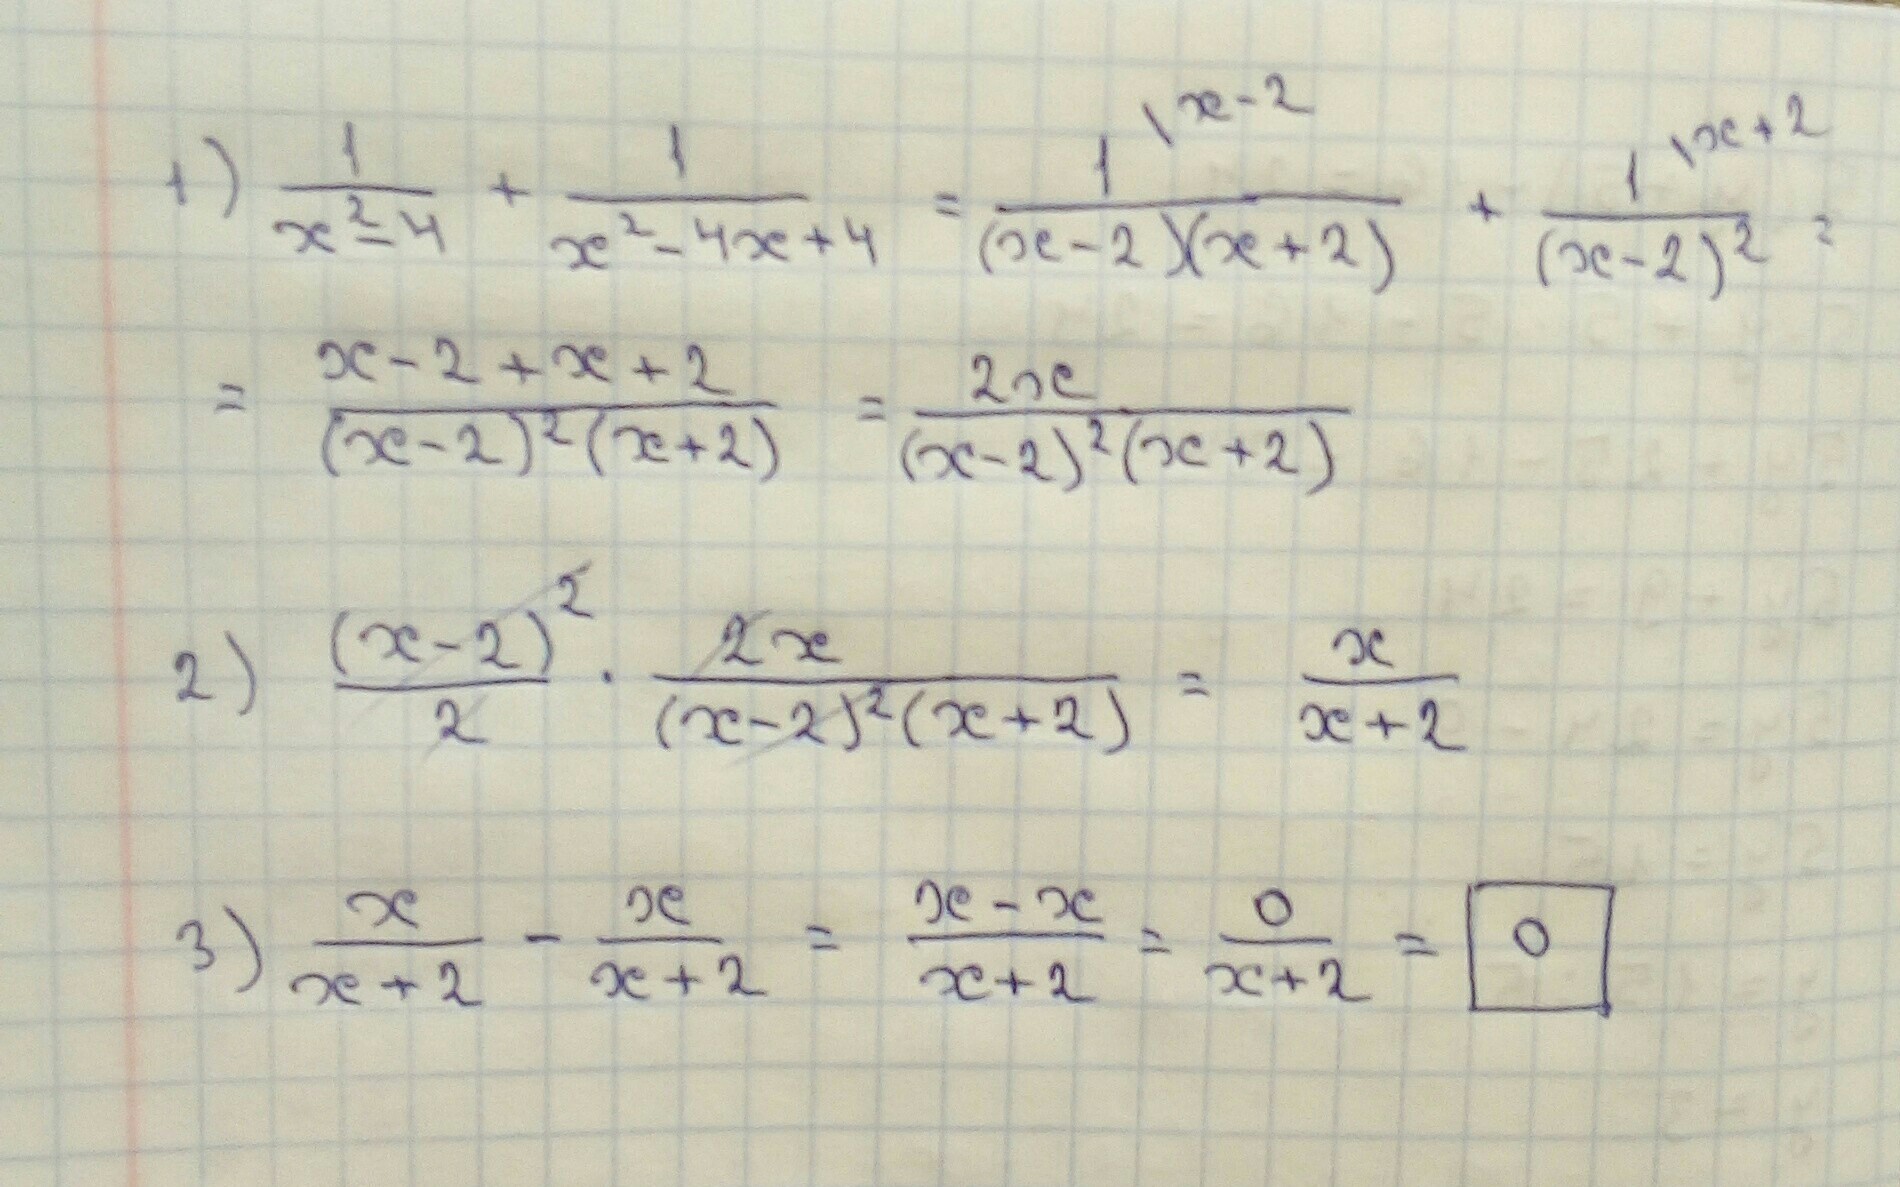 1) 1/(x²-4) + 1/(x²-4x+4) = 1\x-2/((x-2)(x+2)) + 1\x+2/((x-2)²) =
= (x-2+x+2)/((x-2)²(x+2)) = 2x/((x-2)²(x+2))
2) (x-2)²/2 · 2x/((x-2)²(x+2)) = x/(x+2)
3) x/(x+2) - x/(x+2) = (x-x)/(x+2) = 0/(x+2) = 0